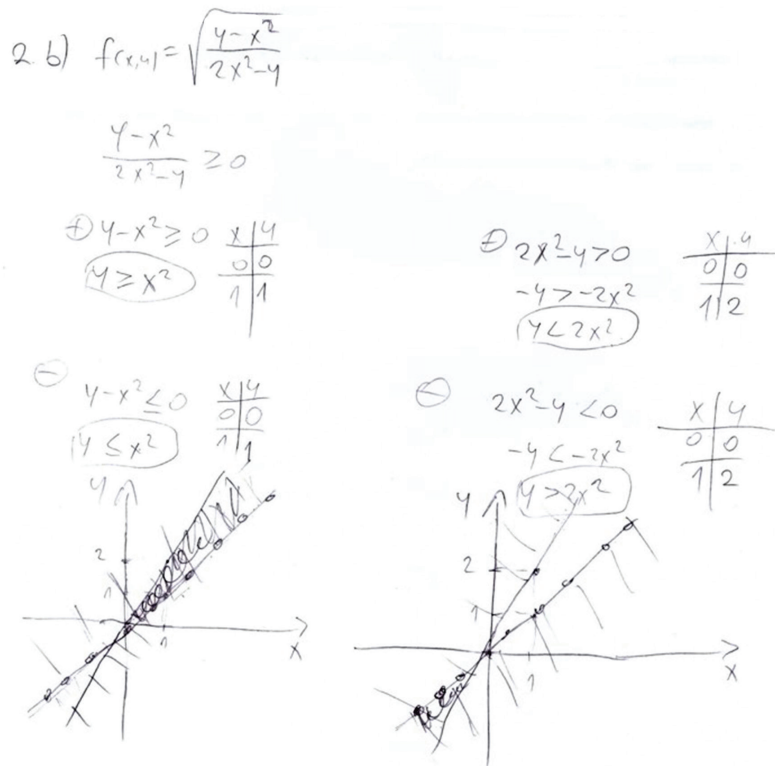 2. b) f(x,y) = √((y-x²)/(2x²-y))
(y-x²)/(2x²-y) ≥ 0
⊕ y-x² ≥ 0
y ≥ x²
x | y
0 | 0
1 | 1
⊕ 2x²-y > 0
-y > -2x²
y < 2x²
x | y
0 | 0
1 | 2
⊖ y-x² ≤ 0
y ≤ x²
x | y
0 | 0
1 | 1
⊖ 2x²-y < 0
-y < -2x²
y > 2x²
x | y
0 | 0
1 | 2
y
2
1
1
x
y
2
1
1
x